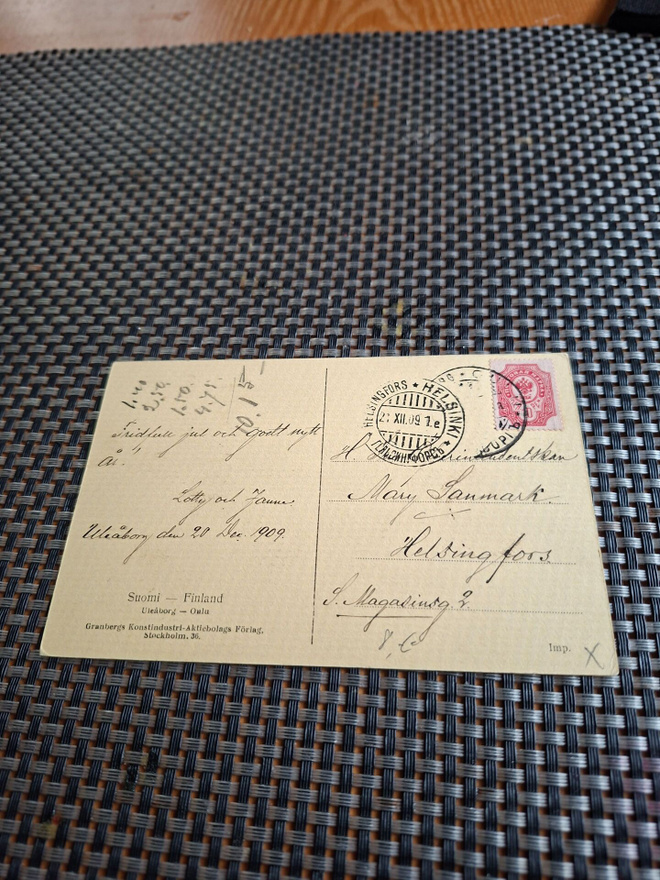 1.40
2.50
1.50.
4.75.
Fridfull jul och godt nytt
År!
Lotty och Janne
Uleåborg den 20 Dec. 1909.
Suomi — Finland
Uleåborg — Oulu
Granbergs Konstindustri-Aktiebolags Förlag,
Stockholm. 36.
HELSINGFORS * HELSINKI *
XII.09
ГЕЛЬСИНГФОРСЪ
Mary Sanmark.
Helsingfors.
S. Magasinsg 2.
Imp.
X